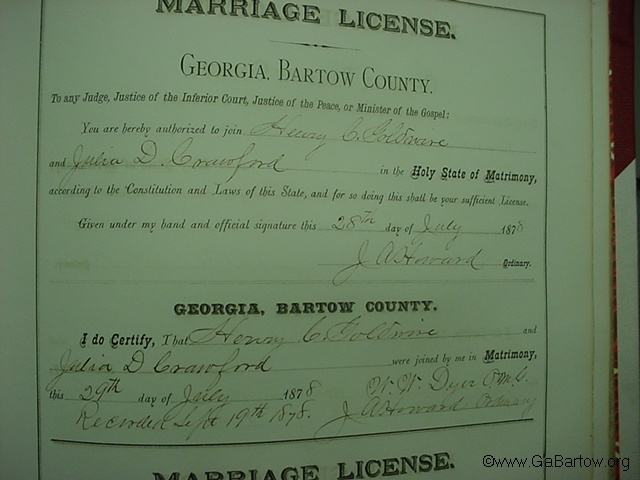 MARRIAGE LICENSE.
GEORGIA, BARTOW COUNTY.
To any Judge, Justice of the Inferior Court, Justice of the Peace, or Minister of the Gospel:
You are hereby authorized to join Henry C. Goldwire
and Julia D. Crawford in the Holy State of Matrimony,
according to the Constitution and Laws of this State, and for so doing this shall be your sufficient License.
Given under my hand and official signature this 28th day of July 1878
J A Howard Ordinary.
GEORGIA, BARTOW COUNTY.
I do Certify, That Henry C. Goldwire and
Julia D Crawford were joined by me in Matrimony,
this 29th day of July 1878 W. W. Dyer
Recorded Sept 19th 1878. J A Howard Ordinary
MARRIAGE LICENSE.
©www.GaBartow.org